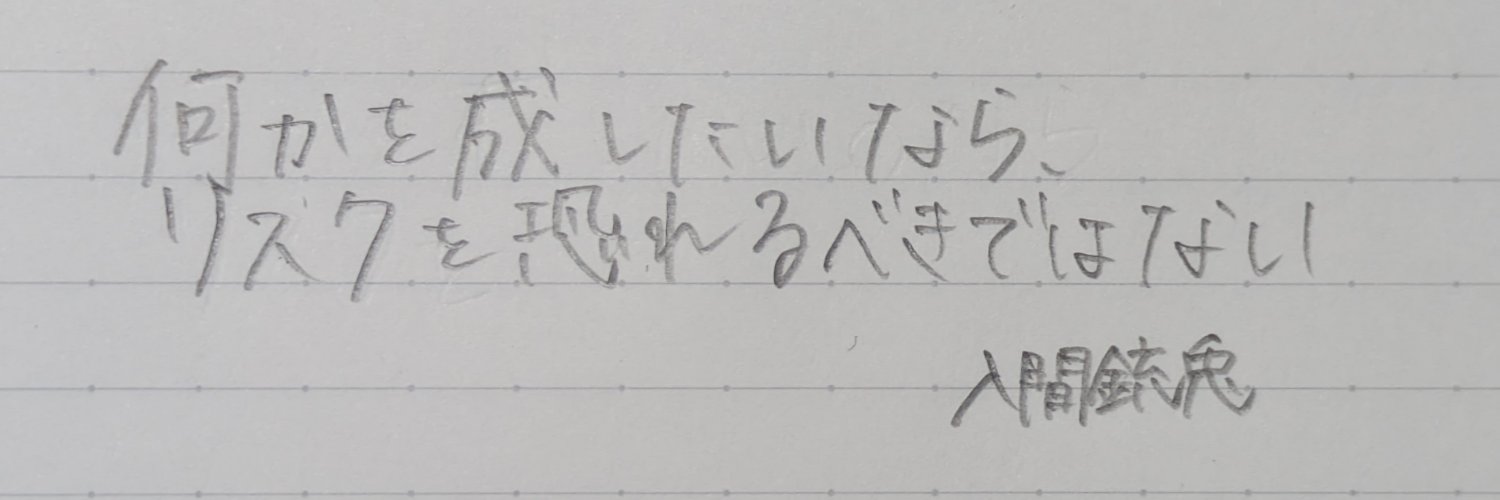 何かを成したいなら、
リスクを恐れるべきではない
入間銃兎